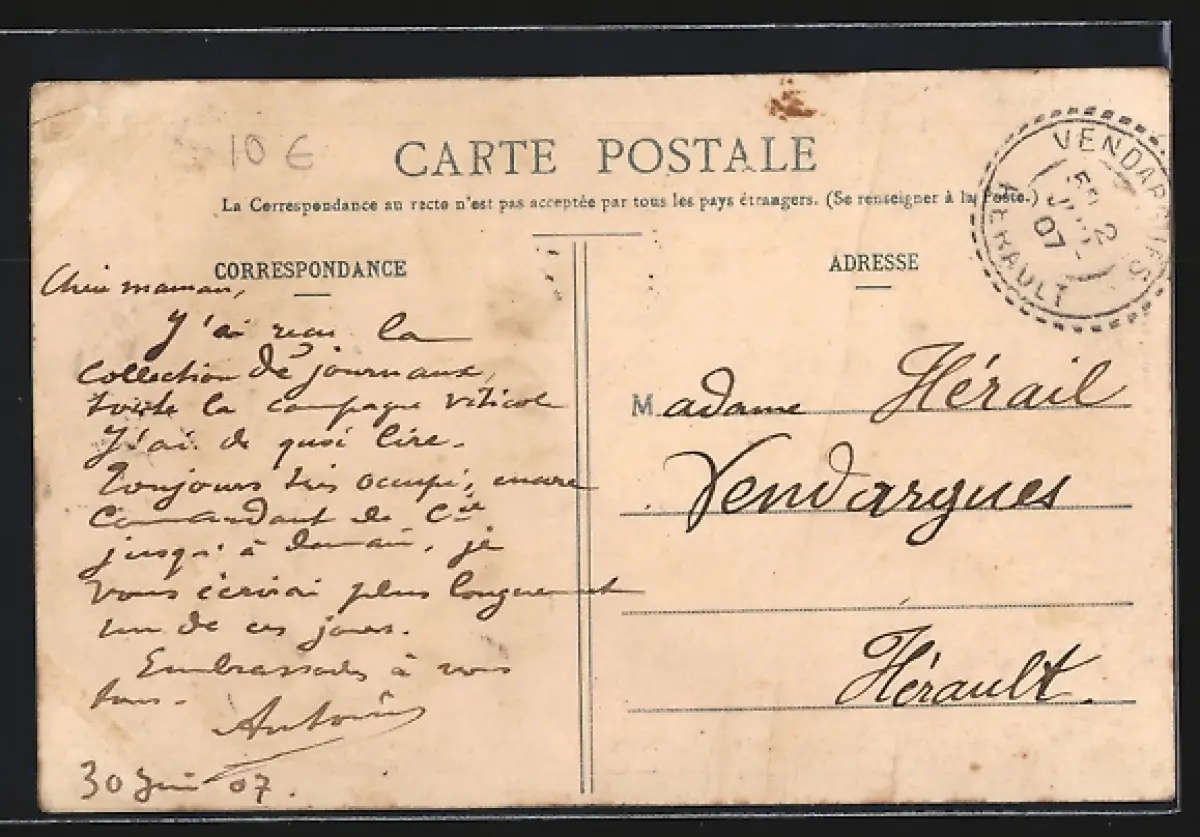 10 €
CARTE POSTALE
La Correspondance au recto n'est pas acceptée par tous les pays étrangers. (Se renseigner à la Poste.)
CORRESPONDANCE
Chère maman,
J'ai reçu la
collection de journaux,
toute la campagne viticole
J'ai de quoi lire.
Toujours très occupé, encore
Commandant de Cie
jusqu'à demain, je
vous écrirai plus longuement
un de ces jours.
Embrassades à vous
tous.
Antoine
30 Juin 07.
ADRESSE
Madame Hérail
Vendargues
Hérault.
VENDARGUES
2
07
HERAULT